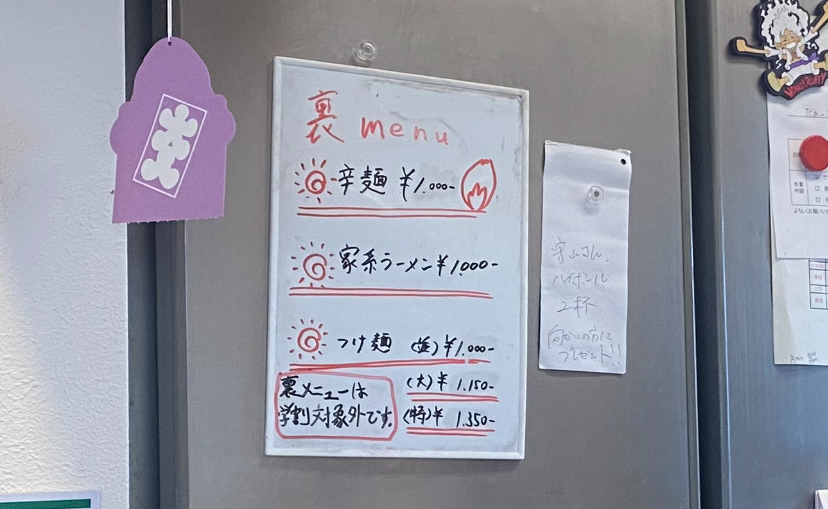 裏 menu
辛麺 ¥1.000-
家系ラーメン ¥1.000-
つけ麺 (並) ¥1.000-
(大) ¥1.150-
(特) ¥1.350-
裏メニューは
学割対象外です。
守山さん、
ハイボール
2杯
向かいの方に
プレゼント!!